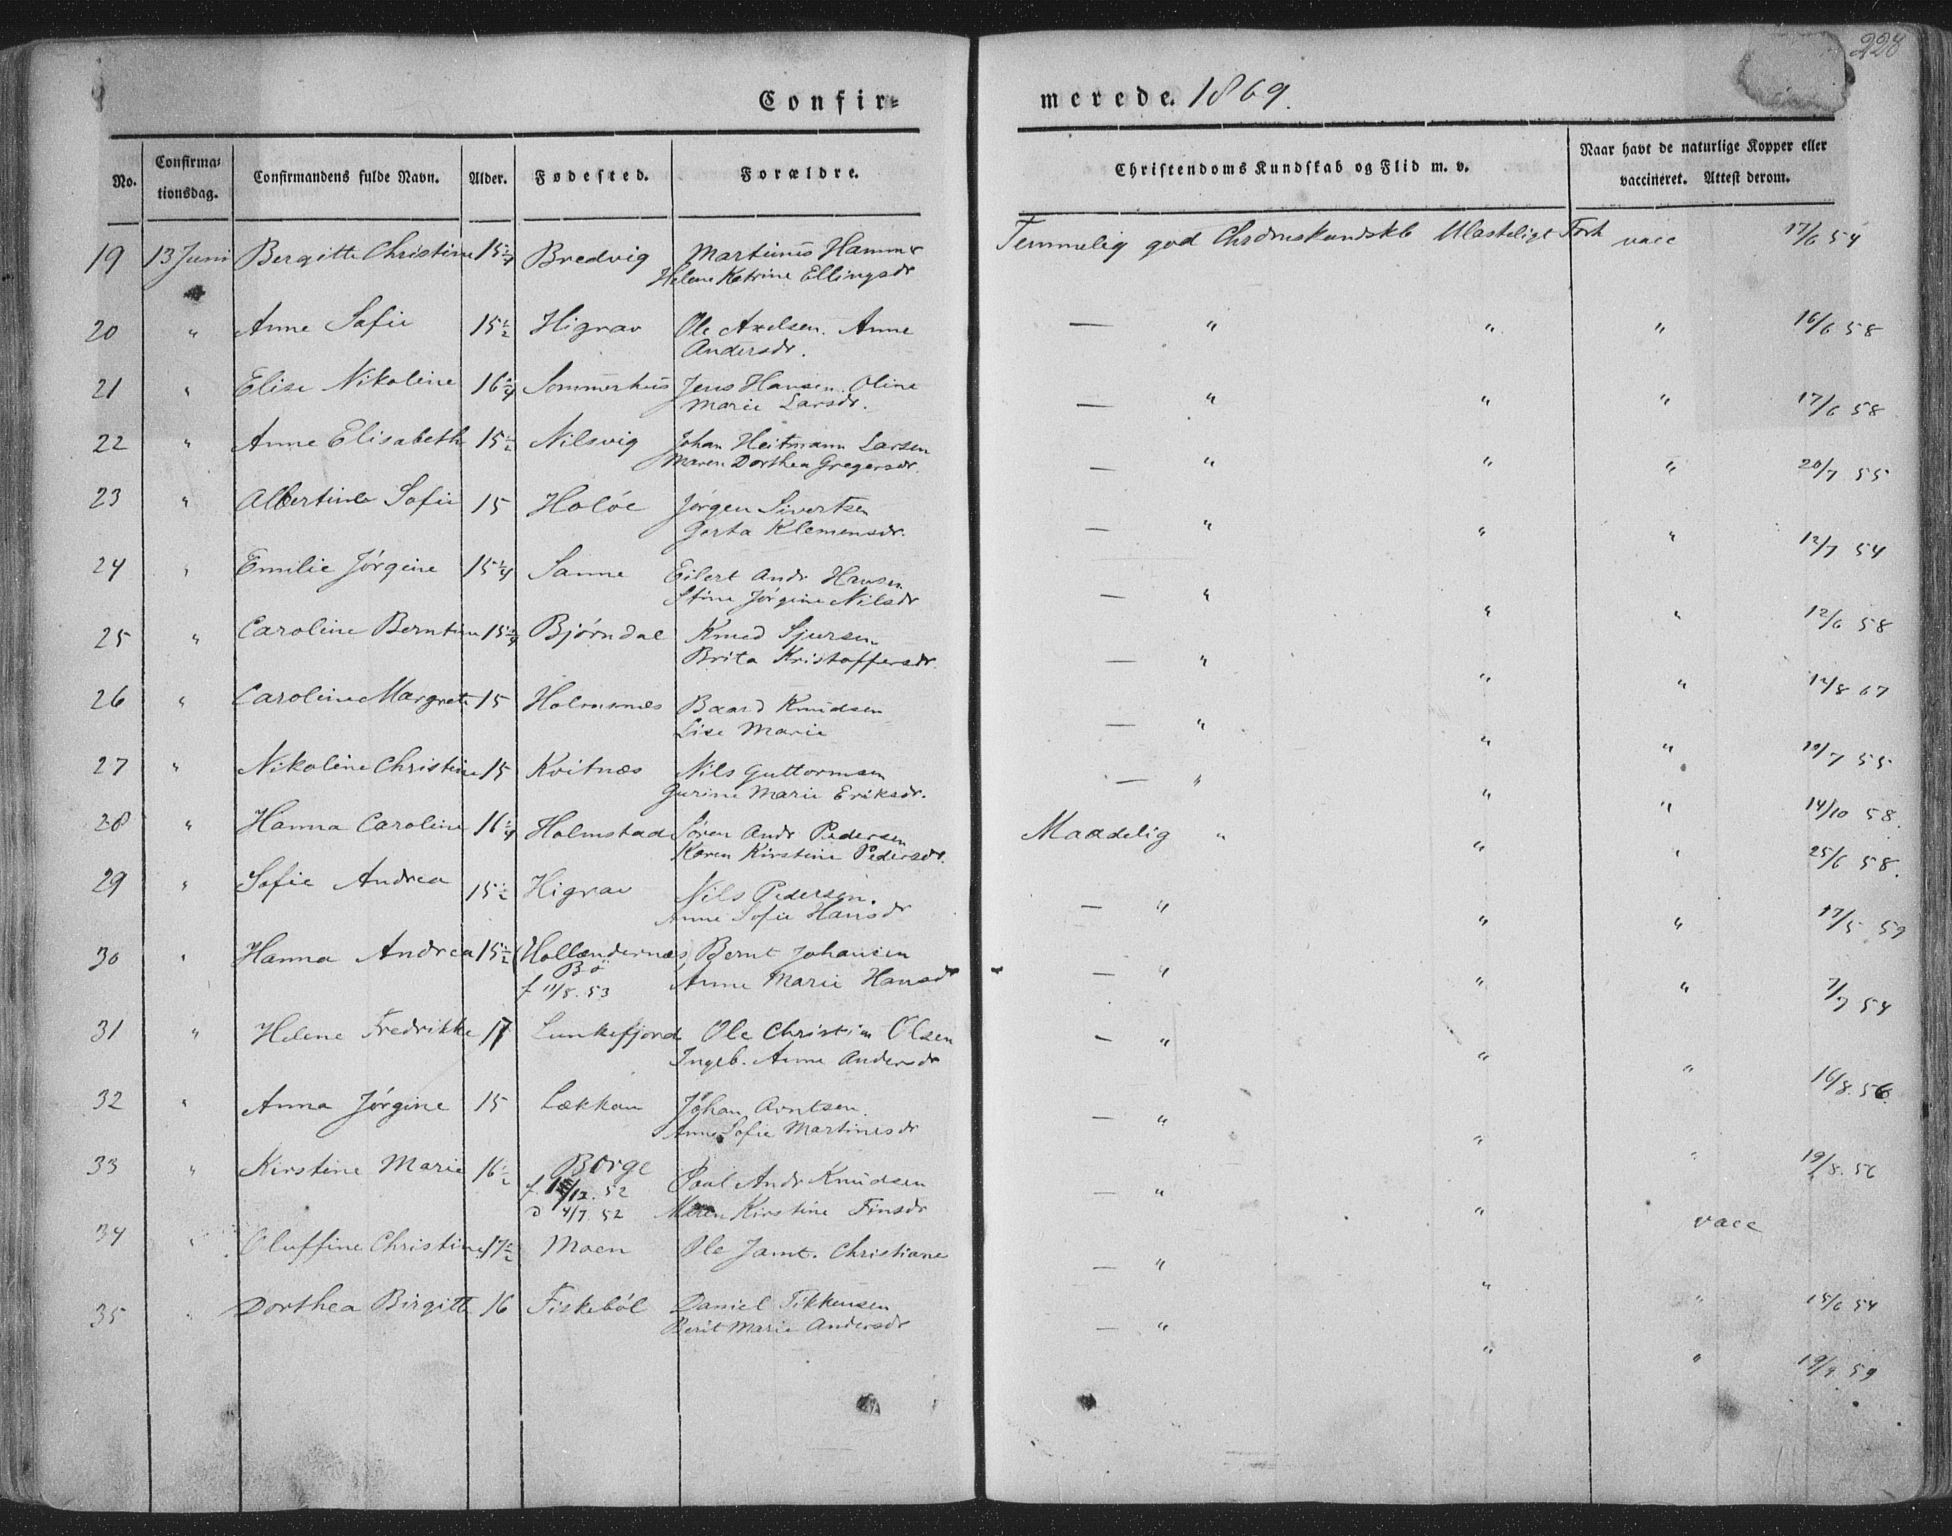 228
Confir-
merede. 1869.
No. Confirma-tionsdag. Confirmandens fulde Navn. Alder. Fødested. Forældre. Christendoms Kundskab og Flid m. v. Naar havt de naturlige Kopper eller vaccineret. Attest derom.
19 13 Juni Bergitte Christine 15 1/4 Bredvig Martinus Hammer Temmelig god Chrdmskundskb Ulasteligt Forh vacc 17/6 54
Helene Katrine Ellingsdr
20 " Anne Sofie 15 1/2 Higrav Ole Axelsen. Anne — " " " 16/6 58
Andersdr.
21 " Elise Nikoline 16 1/4 Sommerhus Jens Hansen. Oline — " " " 17/6 58
Marie Larsdr.
22 " Anne Elisabeth 15 1/2 Nilsvig Johan Heitmann Larsen — " " " 20/7 55
Maren Dorthea Gregersdr.
23 " Albertine Sofie 15 Holöe Jörgen Sivertsen — " " " 12/7 54
Gerta Klemensdr.
24 " Emilie Jörgine 15 1/4 Sanne Eilert Andr Hansen — " " " 12/6 58
Stine Jörgine Nilsdr
25 " Caroline Berntine 15 1/4 Björndal Knud Sjursen — " " " 12/8 67
Brita Kristoffersdr.
26 " Caroline Margrete 15 Holmsnæs Baard Knudsen — " " " 19/7 55
Lise Marie
27 " Nikoline Christine 15 Kvitnæs Nils Guttormsen — " " " 14/10 58.
Gurine Marie Eriksdr.
28 " Hanna Caroline 16 1/4 Holmstad Sören Andr Pedersen Maadelig " " " 25/6 58.
Karen Kirstine Pedersdr.
29 " Sofie Andrea 15 1/2 Higrav Nils Pedersen. — " " " 17/5 59
Anne Sofie Hansdr
30 " Hanna Andrea 15 1/2 (Hollændernæs, Bernt Johansen — " " " 7/7 54
Bö
f 11/8. 53 Anne Marie Hansdr
31 " Helene Fredrikke 17 Lunkefjord Ole Christian Olsen — " " " 16/8. 56.
Ingeb. Anne Andersdr
32 " Anna Jörgine 15 Lækkan Johan Arntsen. — " " " 19/8. 56
Anne Sofie Martinesdr
33 " Kirstine Marie 16 1/2 Borge Paul Andr Knudsen — " " vacc
f. /12. 52
D 4/7. 52 Maren Kirstine Finsdr
34 " Oluffine Christine 17 1/2 Moen Ole Jamt. Christiane — " " " 15/6 54
35 " Dorthea Birgitte 16 Fiskeböl Daniel Tikkensen — " " " 19/9. 59
Berit Marie Andersdr